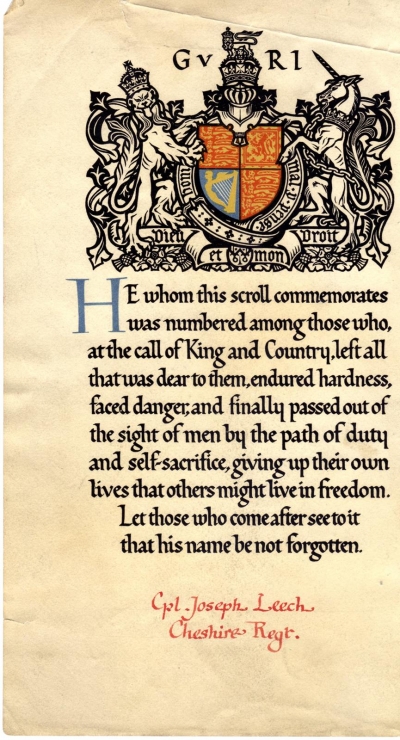 GvRI
Dieu et mon Droit
HE whom this scroll commemorates
was numbered among those who,
at the call of King and Country, left all
that was dear to them, endured hardness,
faced danger, and finally passed out of
the sight of men by the path of duty
and self-sacrifice, giving up their own
lives that others might live in freedom.
Let those who come after see to it
that his name be not forgotten.
Cpl. Joseph Leech
Cheshire Regt.